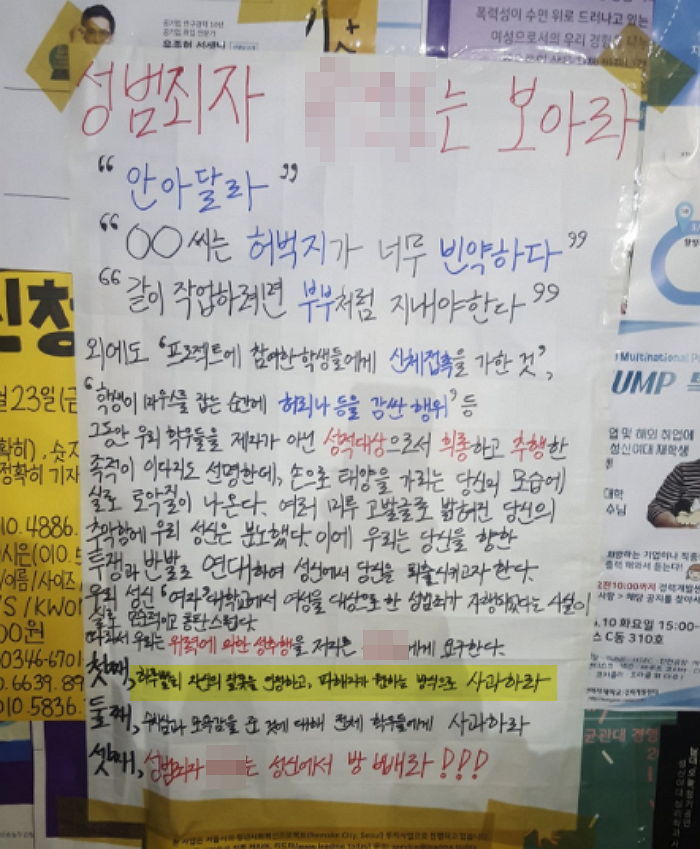 공기업 연구경력 10년
공기업 취업 전문가
유조허 선생님
폭력성이 수면 위로 드러나고 있는
여성으로서의 우리 경험을 나누
성범죄자 는 보아라
“ 안아달라 ”
“ OO씨는 허벅지가 너무 빈약하다 ”
“ 같이 작업하려면 부부처럼 지내야한다 ”
외에도 ‘프로젝트에 참여한 학생들에게 신체접촉을 가한 것’,
‘학생이 마우스를 잡는 순간에 허리나 등을 감싼 행위’ 등
그동안 우리 학우들을 제자가 아닌 성적대상으로서 희롱하고 추행한
족적이 이다지도 선명한데, 손으로 태양을 가리는 당신의 모습에
실로 토악질이 나온다. 여러 미투 고발글로 밝혀진 당신의
추악함에 우리 성신은 분노했다. 이에 우리는 당신을 향한
투쟁과 반발로 연대하여 성신에서 당신을 퇴출시키고자 한다.
우리 성신 “여자”대학교에서 여성을 대상으로 한 성범죄가 자행되었다는 사실이
실로 모순적이고 통탄스럽다.
따라서 우리는 위력에 의한 성추행을 저지른 에게 요구한다.
첫째, 하루빨리 자신의 잘못을 인정하고, 피해자가 원하는 방식으로 사과하라
둘째, 수치심과 모욕감을 준 것에 대해 전체 학우들에게 사과하라
셋째, 성범죄자 는 성신에서 방 빼라 !!!
신청
월 23일(금
확히), 숫자
정확히 기재
010.4886.
/이름/사이즈/
00원
00346-6701
0.6639.89
010.5836.
Multinational
UMP
업 및 해외 취업에
성신여대 재학생
대학
수님
희망하는 기업이나 직종
출력 해와서 듣는다!
2전10:00까지 경력개발센
사람 > 해당 공지를 찾아서
.10 화요일
스 C동 310호
균관대 경영